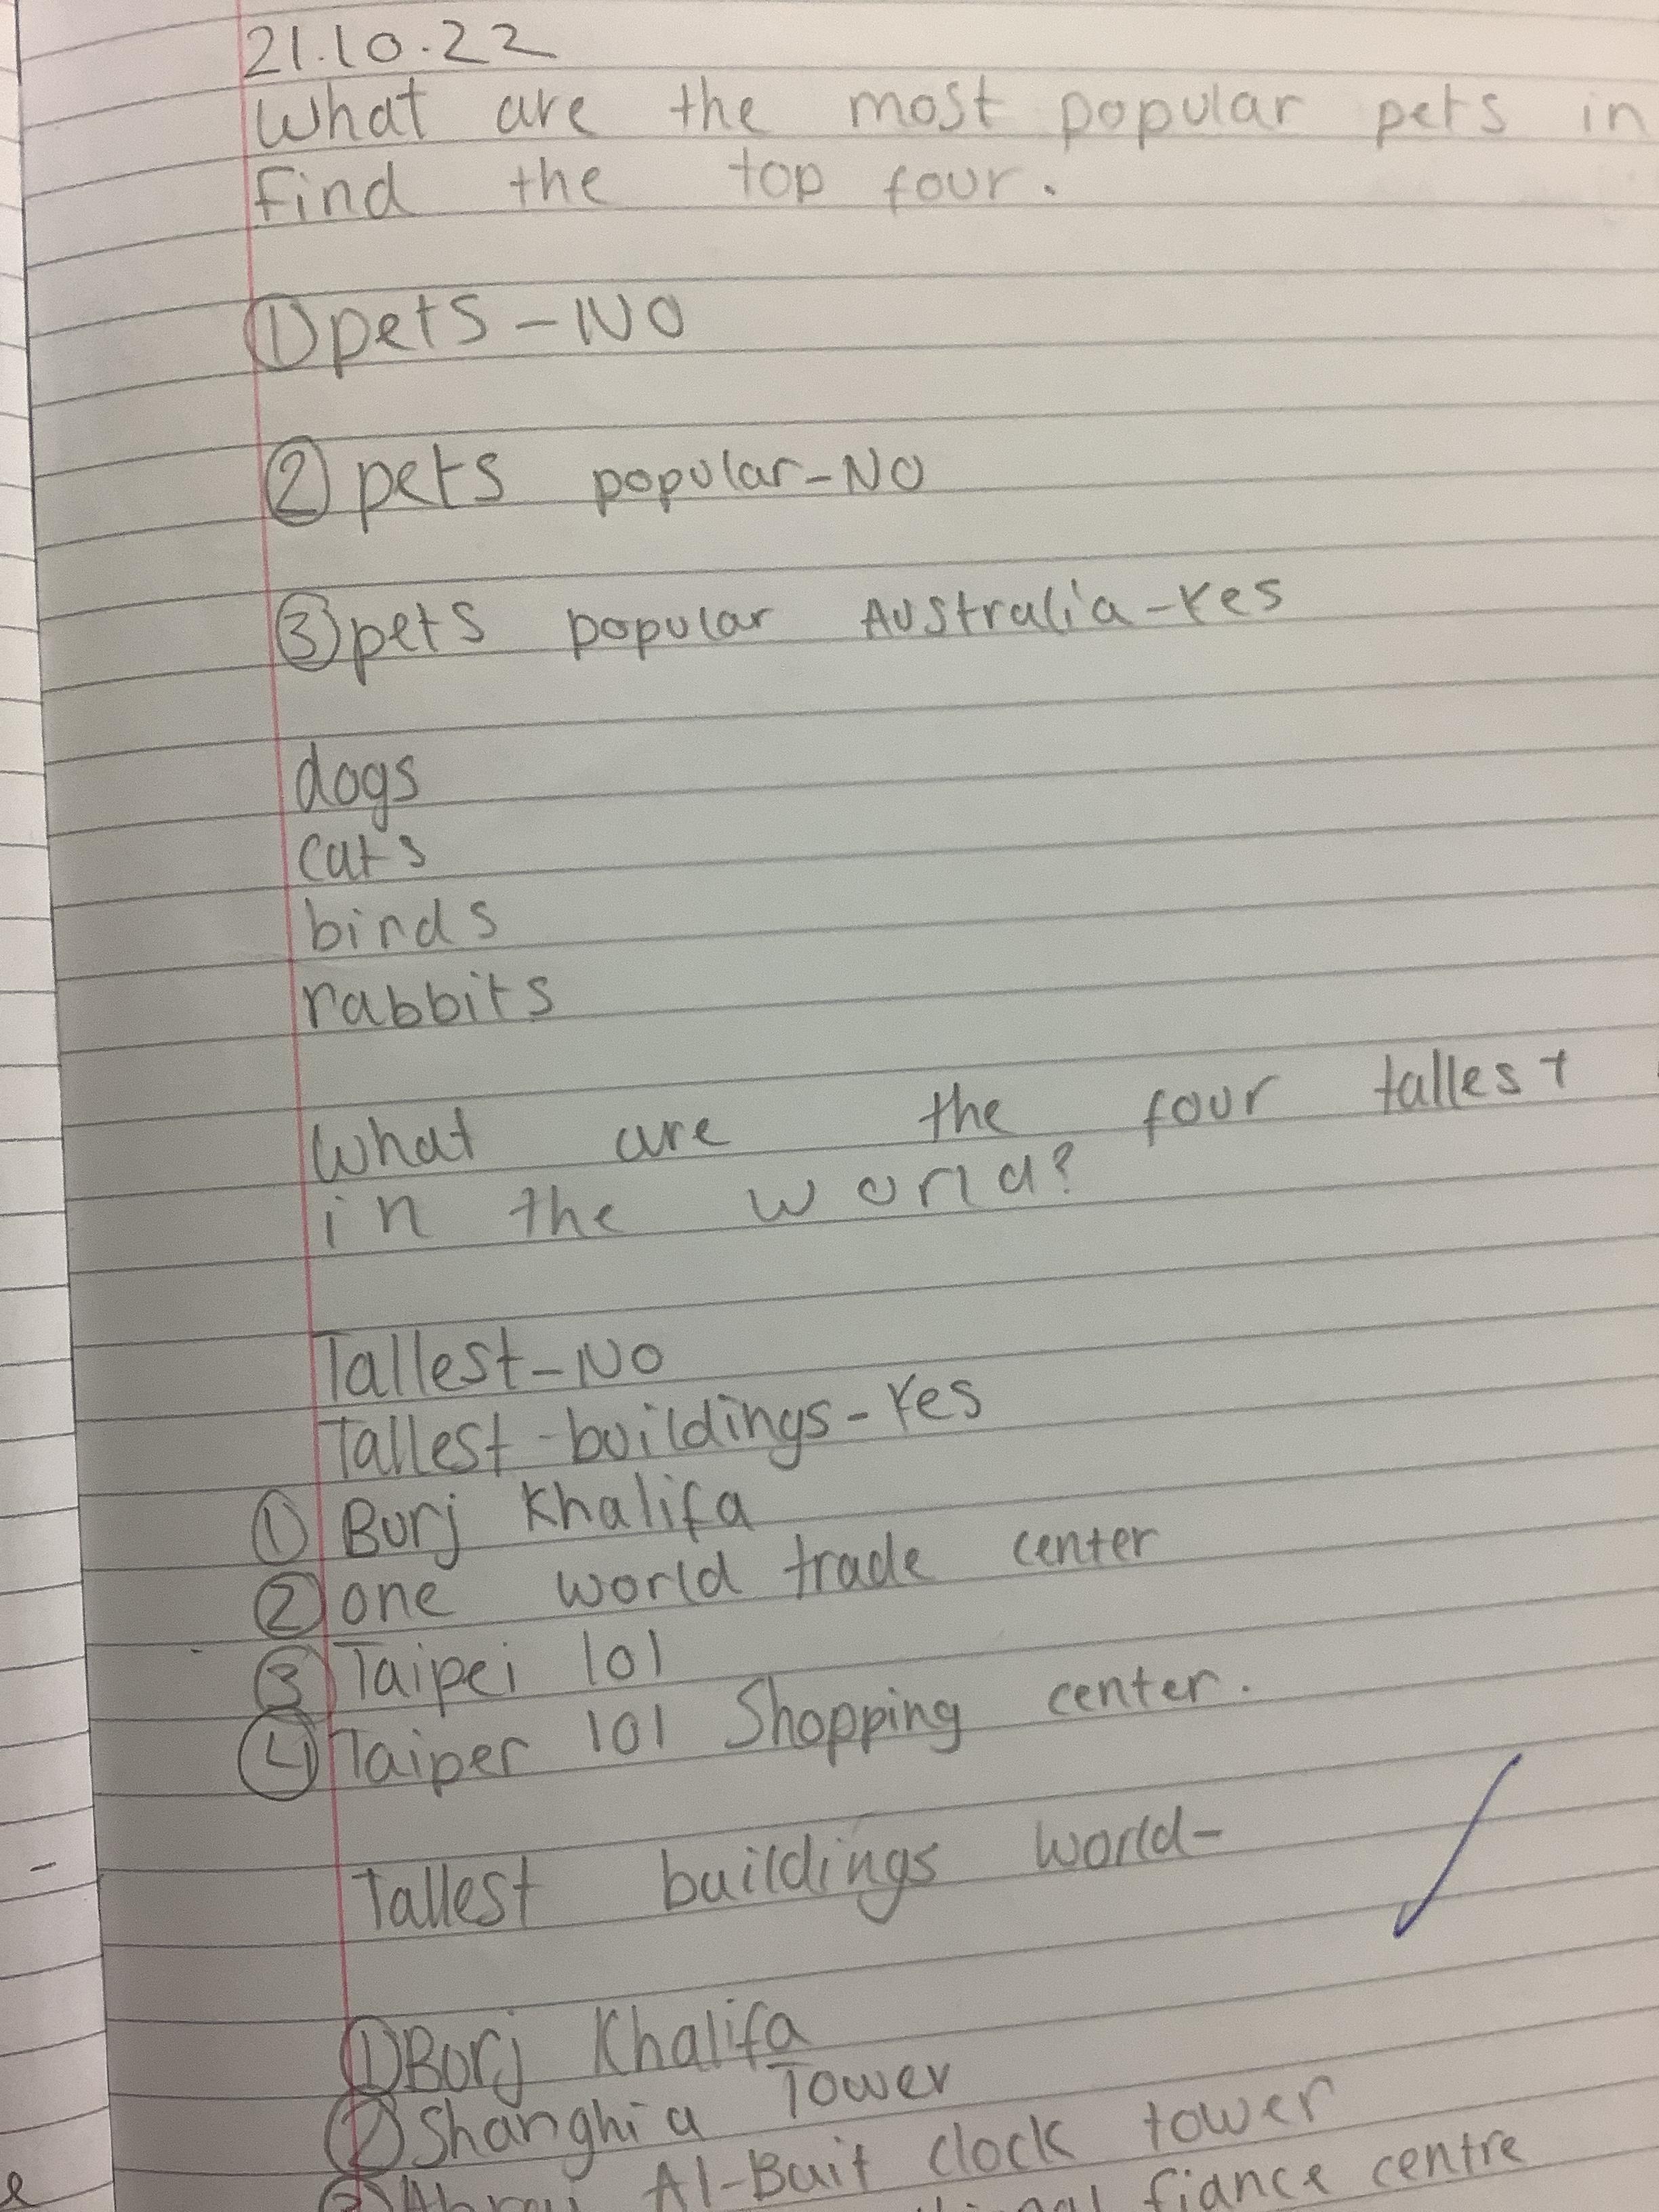 21.10.22
What are the most popular pets in
Find the top four.
① pets - NO
② pets popular - NO
③ pets popular Australia - Yes
dogs
cats
birds
rabbits
What are the four tallest
in the world?
Tallest - NO
Tallest - buildings - Yes
① Burj Khalifa
② one world trade center
③ Taipei 101
④ Taiper 101 Shopping center.
Tallest buildings world -
① Burj Khalifa
② Shanghia Tower
③ Al-Bait clock tower
fiance centre